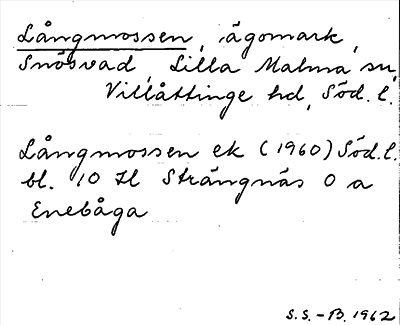 Långmossen, ägomark,
Snösvad, Lilla Malma sn,
Villåttinge hd, Söd. l.
Långmossen ek (1960) Söd. l.
bl. 10 H Strängnäs O a
Enebåga
S.S. - B. 1962